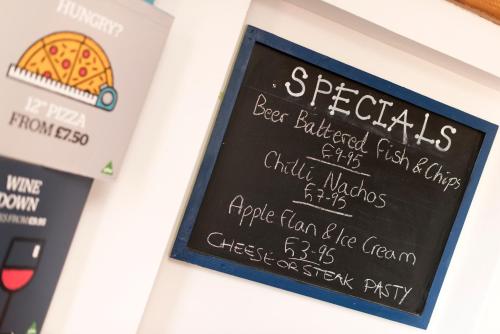 HUNGRY?
12" PIZZA
FROM £7.50
WINE
DOWN
SPECIALS
Beer Battered Fish & Chips
£9.95
Chilli Nachos
£7.95
Apple Flan & Ice Cream
£3.95
CHEESE OR STEAK PASTY